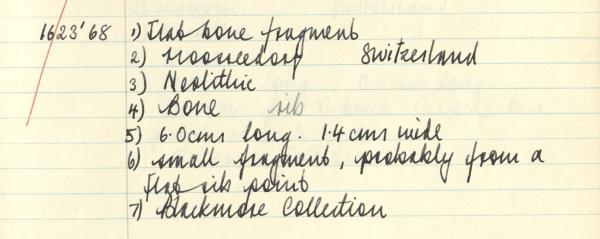 1623'68 1) Flat bone fragment
2) Moosseedorf Switzerland
3) Neolithic
4) Bone rib
5) 6.0cms long. 1.4cms wide
6) small fragment, probably from a
flat rib point
7) Blackmore Collection